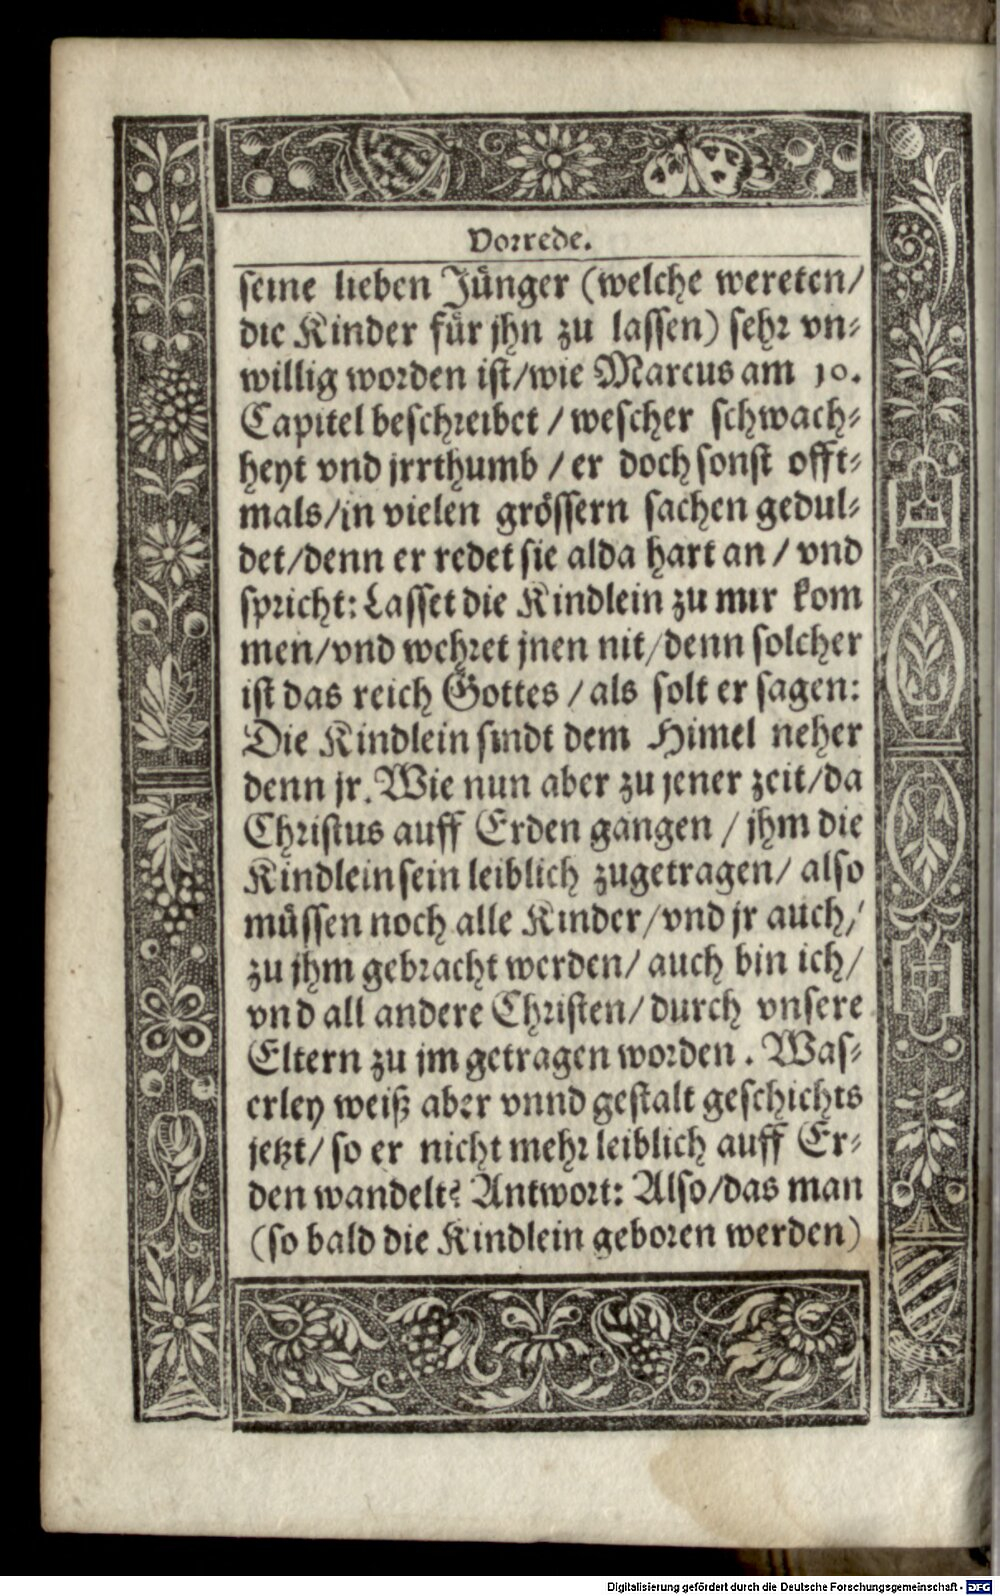 Vorrede.
seine lieben Jünger (welche wereten/
die Kinder für jhn zu lassen) sehr vn-
willig worden ist/wie Marcus am 10.
Capitel beschreibet / wescher schwach-
heyt vnd jrrthumb / er doch sonst offt-
mals/in vielen grössern sachen gedul-
det/denn er redet sie alda hart an / vnd
spricht: Lasset die Kindlein zu mir kom
men/vnd wehret jnen nit/denn solcher
ist das reich Gottes / als solt er sagen:
Die Kindlein sindt dem Himel neher
denn jr. Wie nun aber zu jener zeit/da
Christus auff Erden gangen / jhm die
Kindlein sein leiblich zugetragen/ also
müssen noch alle Kinder/vnd jr auch/
zu jhm gebracht werden/ auch bin ich/
vnd all andere Christen/ durch vnsere
Eltern zu jm getragen worden. Was-
erley weiß aber vnnd gestalt geschichts
jetzt/ so er nicht mehr leiblich auff Er-
den wandelt? Antwort: Also/das man
(so bald die Kindlein geboren werden)
Digitalisierung gefördert durch die Deutsche Forschungsgemeinschaft - DFG